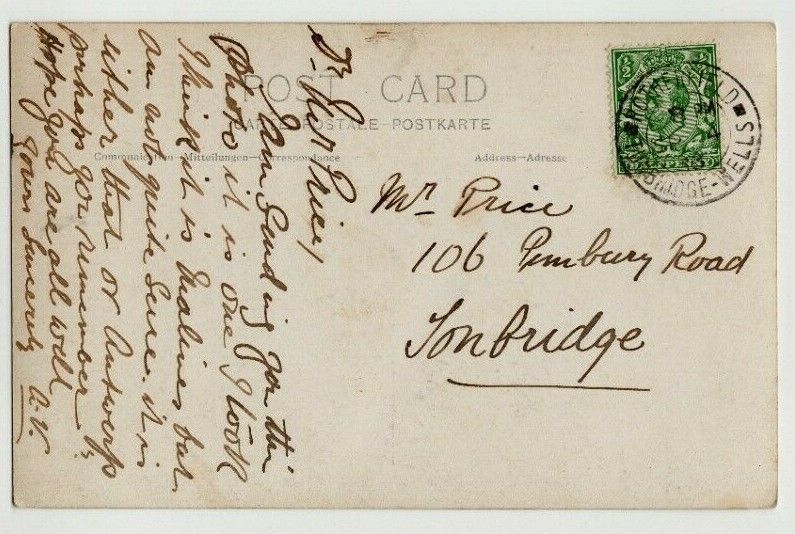 POST CARD
CARTE POSTALE-POSTKARTE
Communication-Mitteilungen-Correspondence
Address-Adresse
½ ½
ROTHERFIELD
TUNBRIDGE-WELLS
Dr Mrs Price,
I am Sending you this
Photo it is one I took
I think it is Malines but
am not quite Sure. it is
either that or Antwerp
perhaps you remember
Hope you are all well
Yours Sincerely A.V.
Mr Price
106 Pembury Road
Tonbridge